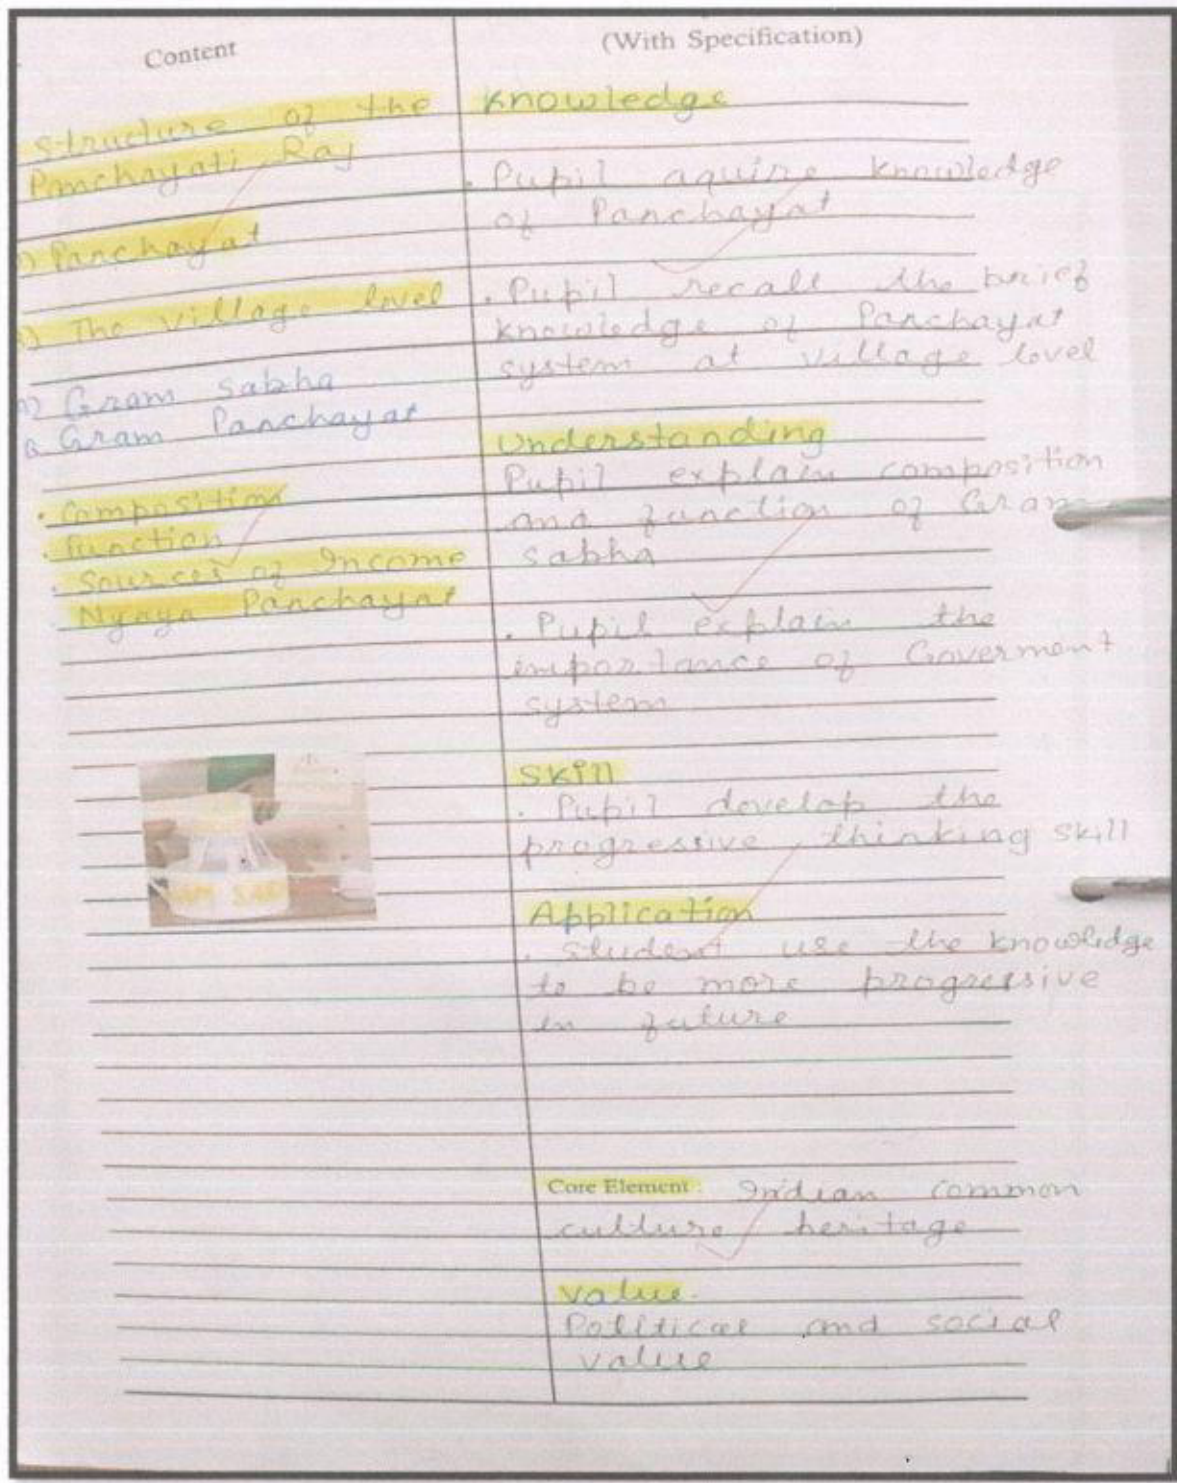 Content
Structure of the
Panchayati Raj
Panchayat
The village level
Gram Sabha
Gram Panchayat
• Composition
• Function
• Sources of Income
Nyaya Panchayat
(With Specification)
Knowledge
• Pupil aquire knowledge
of Panchayat
• Pupil recall the brief
knowledge of Panchayat
system at village level
Understanding
Pupil explain composition
and function of Gram
sabha
• Pupil explain the
importance of Goverment
system
Skill
• Pupil develop the
progressive thinking skill
Application
• Student use the knowledge
to be more progressive
in future
Core Element : Indian common
culture heritage
Value
Political and social
value